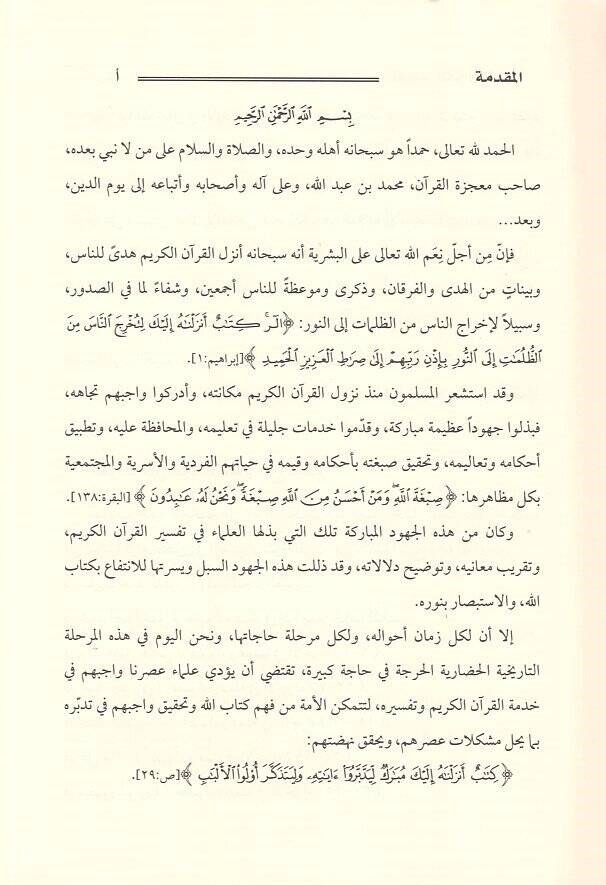 المقدمة أ
بِسْمِ ٱللَّهِ ٱلرَّحْمَٰنِ ٱلرَّحِيمِ
الحمد لله تعالى، حمداً هو سبحانه أهله وحده، والصلاة والسلام على من لا نبي بعده،
صاحب معجزة القرآن، محمد بن عبد الله، وعلى آله وأصحابه وأتباعه إلى يوم الدين،
وبعد...
فإنّ مِن أجلّ نِعَم الله تعالى على البشرية أنه سبحانه أنزل القرآن الكريم هدىً للناس،
وبيناتٍ من الهدى والفرقان، وذكرى وموعظةً للناس أجمعين، وشفاءً لما في الصدور،
وسبيلاً لإخراج الناس من الظلمات إلى النور: ﴿الٓرۚ كِتَٰبٌ أَنزَلْنَٰهُ إِلَيْكَ لِتُخْرِجَ ٱلنَّاسَ مِنَ
ٱلظُّلُمَٰتِ إِلَى ٱلنُّورِ بِإِذْنِ رَبِّهِمْ إِلَىٰ صِرَٰطِ ٱلْعَزِيزِ ٱلْحَمِيدِ﴾[إبراهيم:١].
وقد استشعر المسلمون منذ نزول القرآن الكريم مكانته، وأدركوا واجبهم تجاهه،
فبذلوا جهوداً عظيمة مباركة، وقدّموا خدمات جليلة في تعليمه، والمحافظة عليه، وتطبيق
أحكامه وتعاليمه، وتحقيق صبغته بأحكامه وقيمه في حياتهم الفردية والأسرية والمجتمعية
بكل مظاهرها: ﴿صِبْغَةَ ٱللَّهِۖ وَمَنْ أَحْسَنُ مِنَ ٱللَّهِ صِبْغَةًۖ وَنَحْنُ لَهُۥ عَٰبِدُونَ﴾ [البقرة:١٣٨].
وكان من هذه الجهود المباركة تلك التي بذلها العلماء في تفسير القرآن الكريم،
وتقريب معانيه، وتوضيح دلالاته، وقد ذللت هذه الجهود السبل ويسرتها للانتفاع بكتاب
الله، والاستبصار بنوره.
إلا أن لكل زمان أحواله، ولكل مرحلة حاجاتها، ونحن اليوم في هذه المرحلة
التاريخية الحضارية الحرجة في حاجة كبيرة، تقتضي أن يؤدي علماء عصرنا واجبهم في
خدمة القرآن الكريم وتفسيره، لتتمكن الأمة من فهم كتاب الله وتحقيق واجبهم في تدبّره
بما يحل مشكلات عصرهم، ويحقق نهضتهم:
﴿كِتَٰبٌ أَنزَلْنَٰهُ إِلَيْكَ مُبَٰرَكٌ لِّيَدَّبَّرُوٓا۟ ءَايَٰتِهِۦ وَلِيَتَذَكَّرَ أُو۟لُوا۟ ٱلْأَلْبَٰبِ﴾[ص:٢٩].